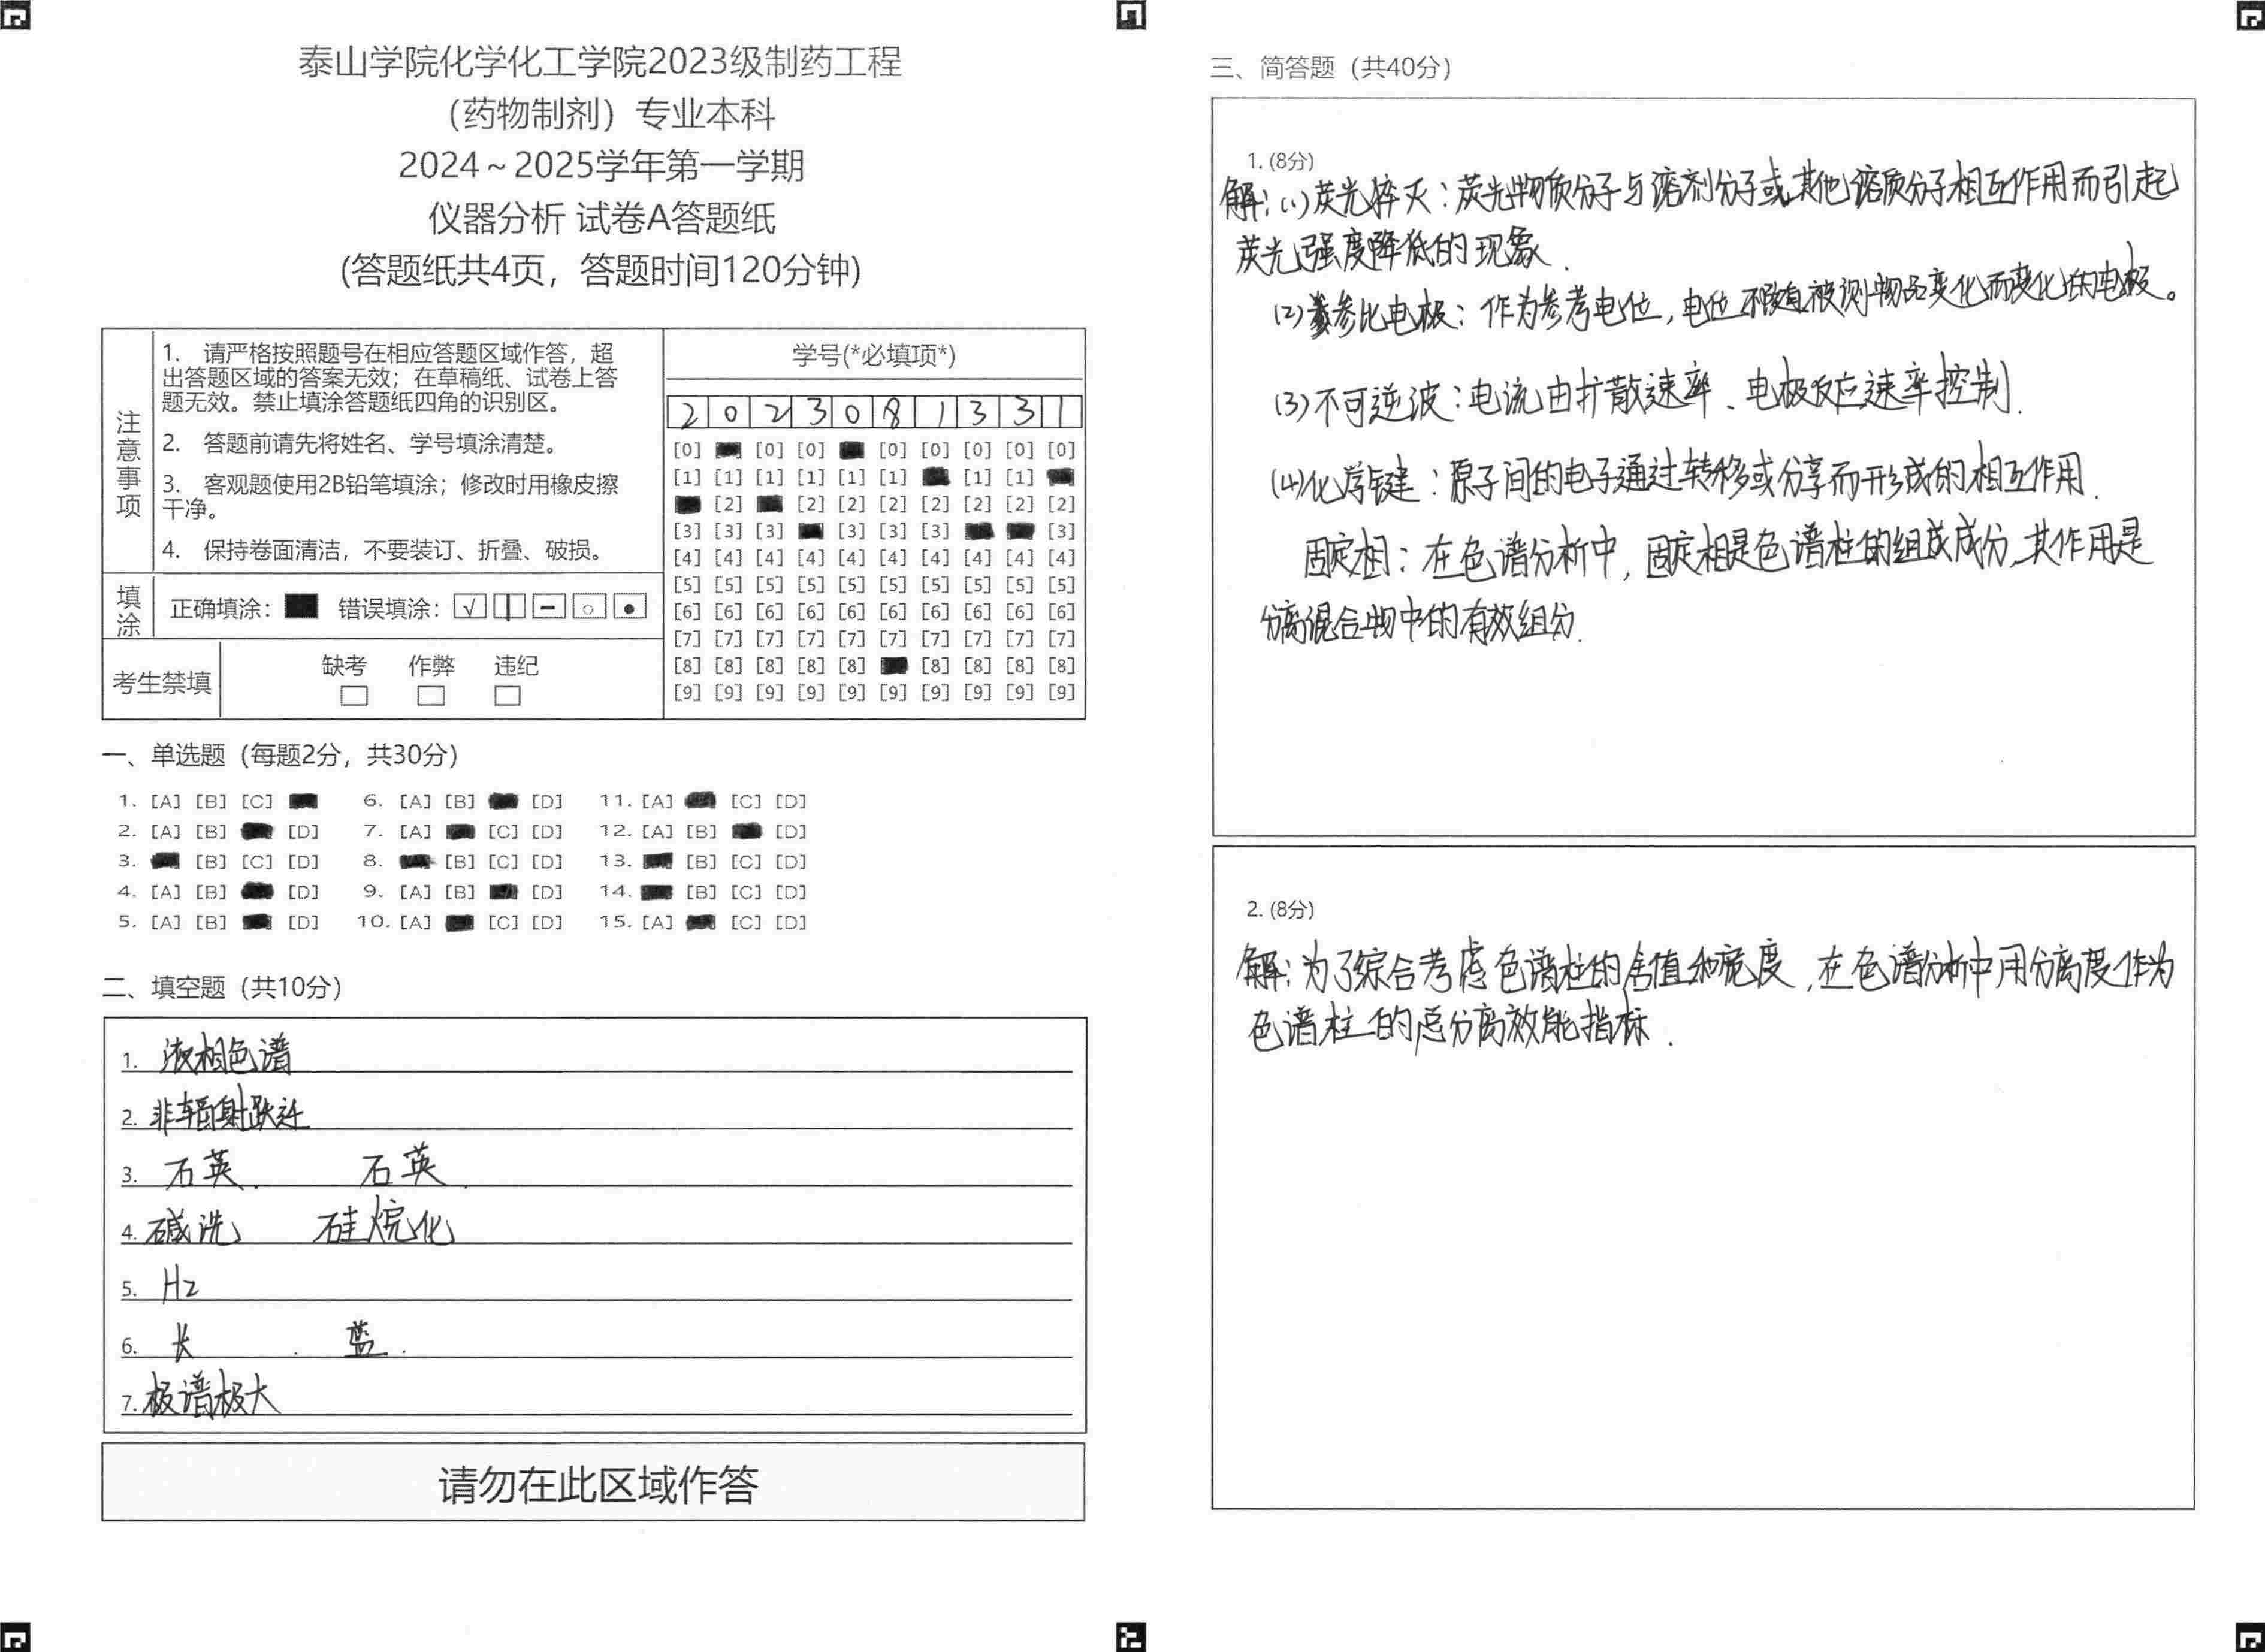 泰山学院化学化工学院2023级制药工程
（药物制剂）专业本科
2024～2025学年第一学期
仪器分析 试卷A答题纸
(答题纸共4页，答题时间120分钟)
注意事项
1. 请严格按照题号在相应答题区域作答，超
出答题区域的答案无效；在草稿纸、试卷上答
题无效。禁止填涂答题纸四角的识别区。
2. 答题前请先将姓名、学号填涂清楚。
3. 客观题使用2B铅笔填涂；修改时用橡皮擦
干净。
4. 保持卷面清洁，不要装订、折叠、破损。
填涂
正确填涂： 错误填涂：
考生禁填
缺考 作弊 违纪
学号(*必填项*)
2 0 2 3 0 8 1 3 3 1
[0] [0] [0] [0] [0] [0] [0] [0]
[1] [1] [1] [1] [1] [1] [1] [1]
[2] [2] [2] [2] [2] [2] [2] [2]
[3] [3] [3] [3] [3] [3] [3]
[4] [4] [4] [4] [4] [4] [4] [4] [4] [4]
[5] [5] [5] [5] [5] [5] [5] [5] [5] [5]
[6] [6] [6] [6] [6] [6] [6] [6] [6] [6]
[7] [7] [7] [7] [7] [7] [7] [7] [7] [7]
[8] [8] [8] [8] [8] [8] [8] [8] [8]
[9] [9] [9] [9] [9] [9] [9] [9] [9] [9]
一、单选题（每题2分，共30分）
1. [A] [B] [C] 6. [A] [B] [D] 11. [A] [C] [D]
2. [A] [B] [D] 7. [A] [C] [D] 12. [A] [B] [D]
3. [B] [C] [D] 8. [B] [C] [D] 13. [B] [C] [D]
4. [A] [B] [D] 9. [A] [B] [D] 14. [B] [C] [D]
5. [A] [B] [D] 10. [A] [C] [D] 15. [A] [C] [D]
二、填空题（共10分）
1. 液相色谱
2. 非辐射跃迁
3. 石英. 石英.
4. 碱洗 硅烷化
5. H2
6. 长 . 蓝.
7. 极谱极大
请勿在此区域作答
三、简答题（共40分）
1. (8分)
解：(1)荧光猝灭：荧光物质分子与溶剂分子或其他溶质分子相互作用而引起
荧光强度降低的现象.
(2)参比电极：作为参考电位，电位不随被测物品变化而变化的电极。
(3)不可逆波：电流由扩散速率、电极反应速率控制.
(4)化学键：原子间的电子通过转移或分享而形成的相互作用.
固定相：在色谱分析中，固定相是色谱柱的组成成分,其作用是
分离混合物中的有效组分.
2. (8分)
解：为了综合考虑色谱柱的含值和宽度，在色谱分析中用分离度作为
色谱柱的总分离效能指标.